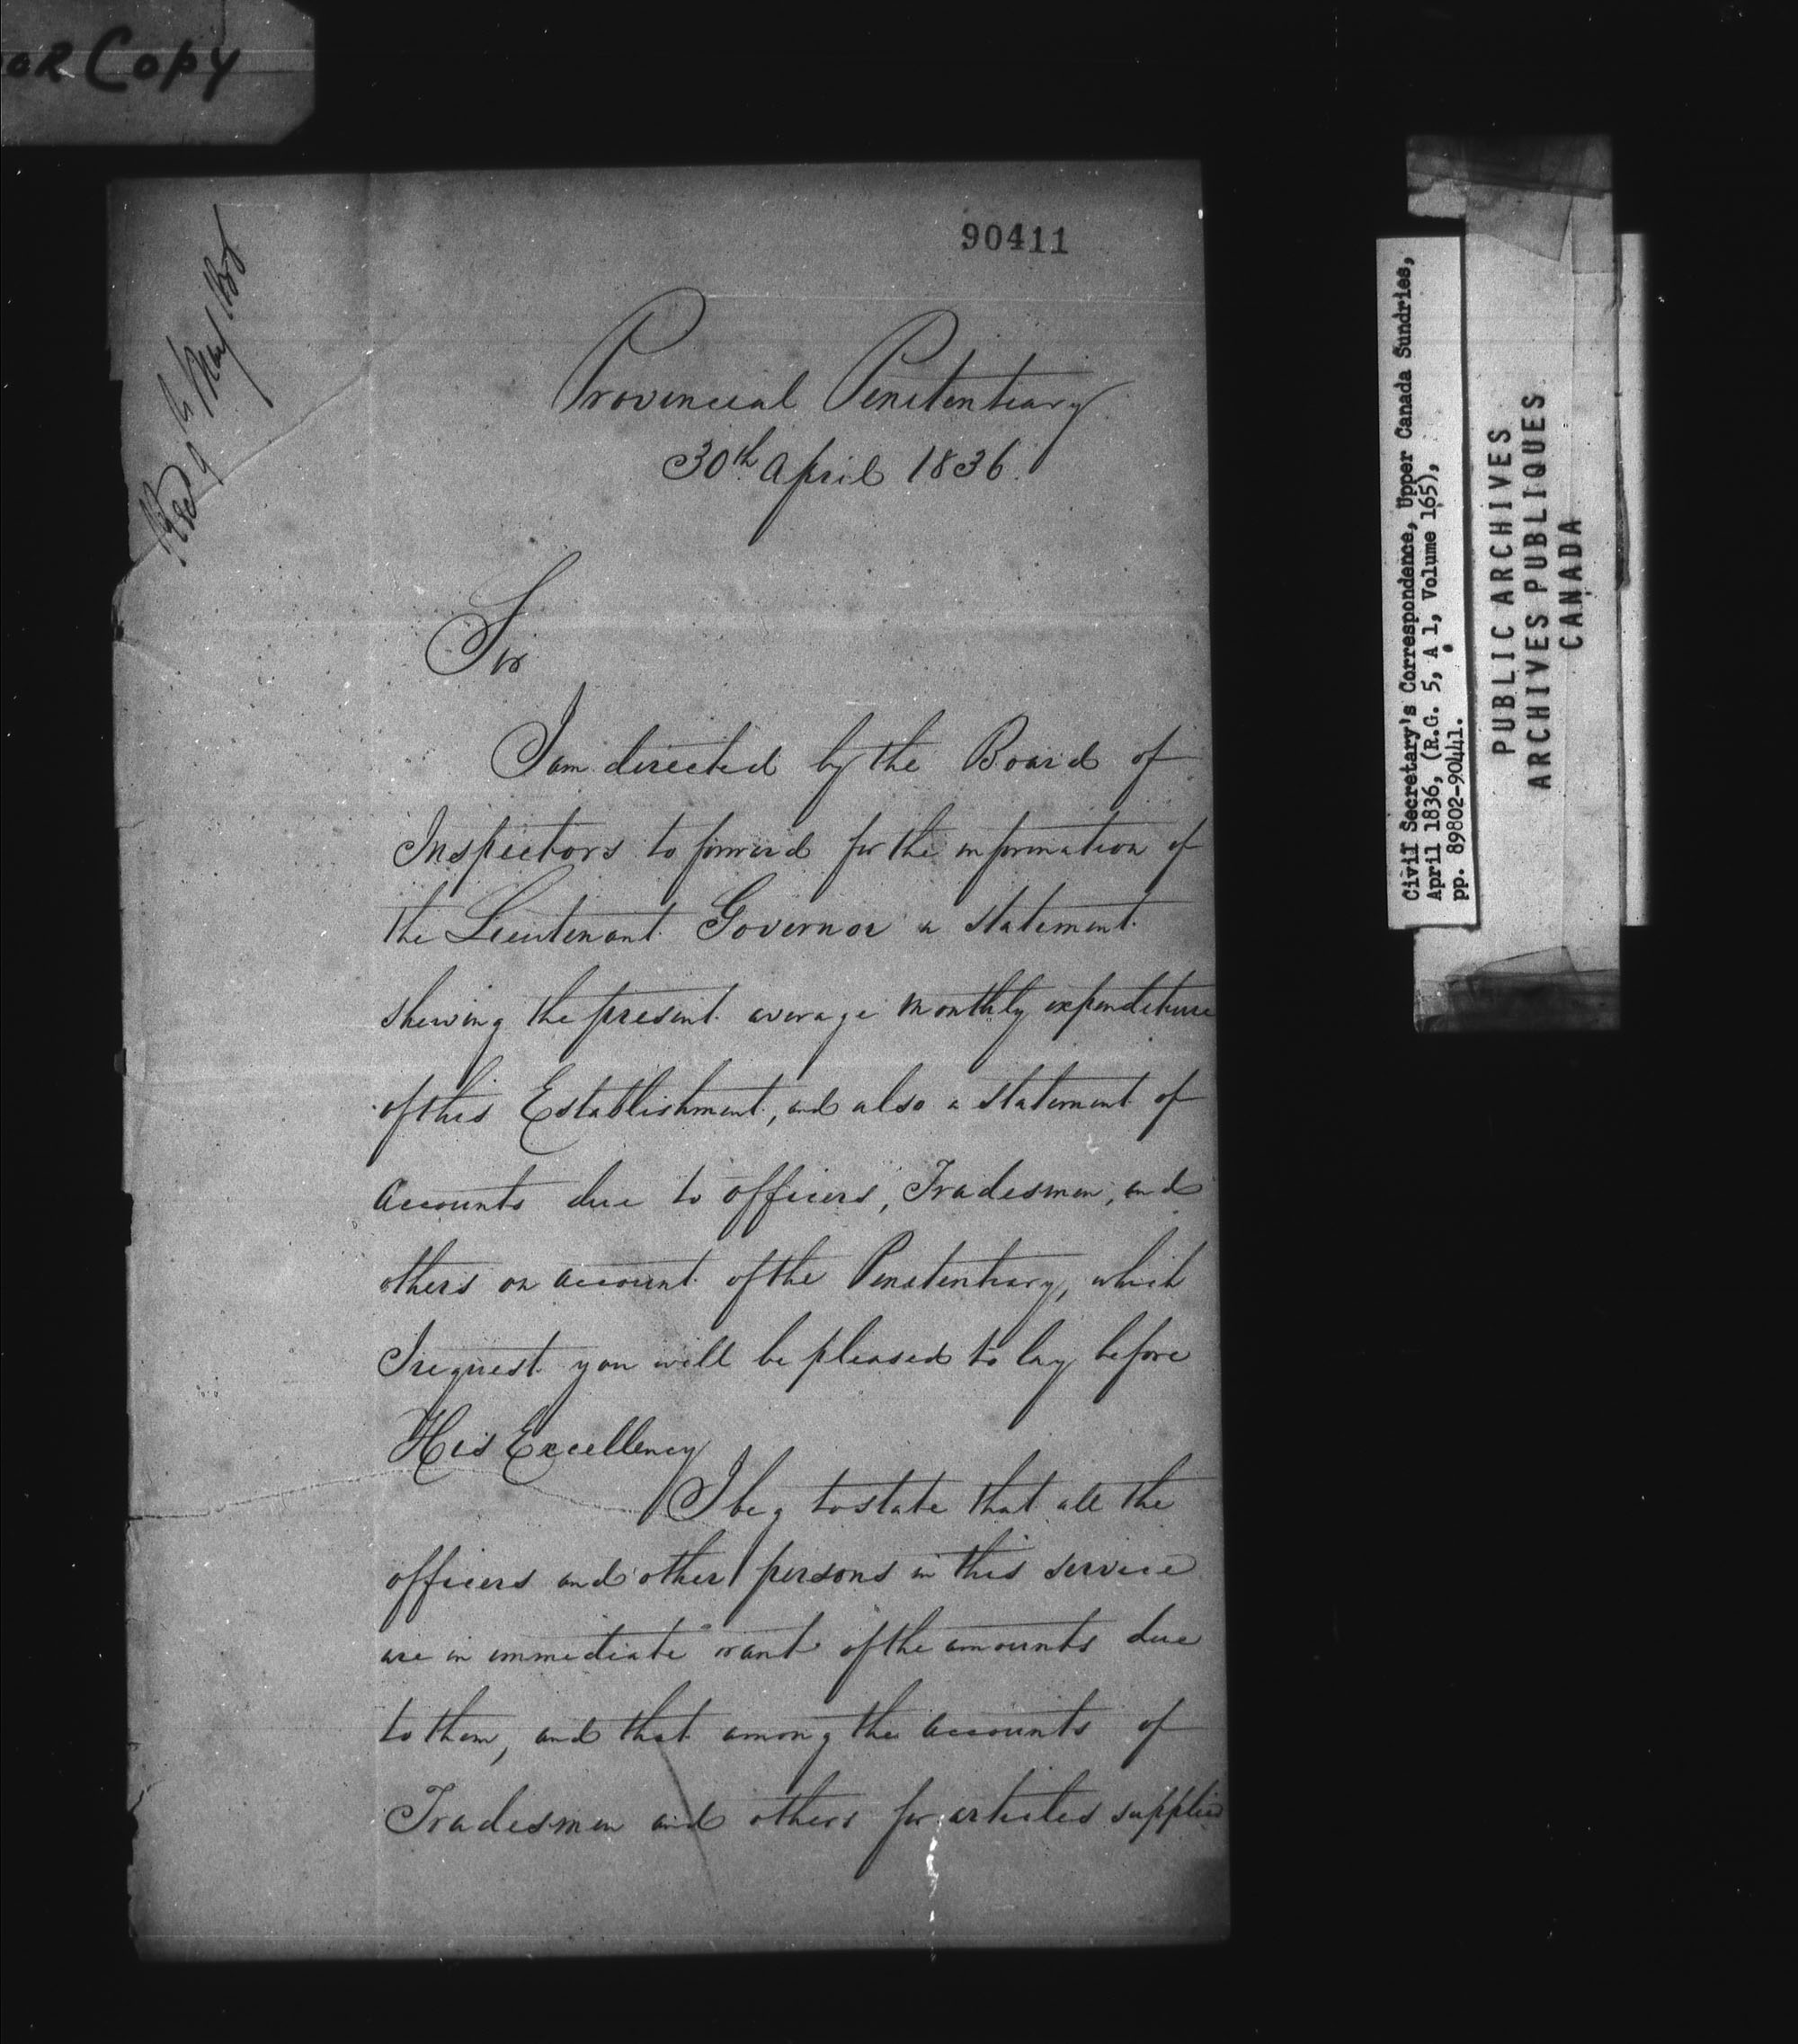 OR Copy
90411
Provincial Penitentiary
30th April 1836.
Sir
I am directed by the Board of
Inspectors to forward for the information of
the Lieutenant Governor a statement
shewing the present average monthly expenditure
of this Establishment, and also a statement of
Accounts due to officers, Tradesmen, and
others on account of the Penitentiary, which
I request you will be pleased to lay before
His Excellency
I beg to state that all the
officers and other persons in this service
are in immediate want of the amounts due
to them, and that among the accounts of
Tradesmen and others for articles supplied
Civil Secretary's Correspondence, Upper Canada Sundries,
April 1836, (R.G. 5, A 1, Volume 165),
pp. 89802-90441.
PUBLIC ARCHIVES
ARCHIVES PUBLIQUES
CANADA